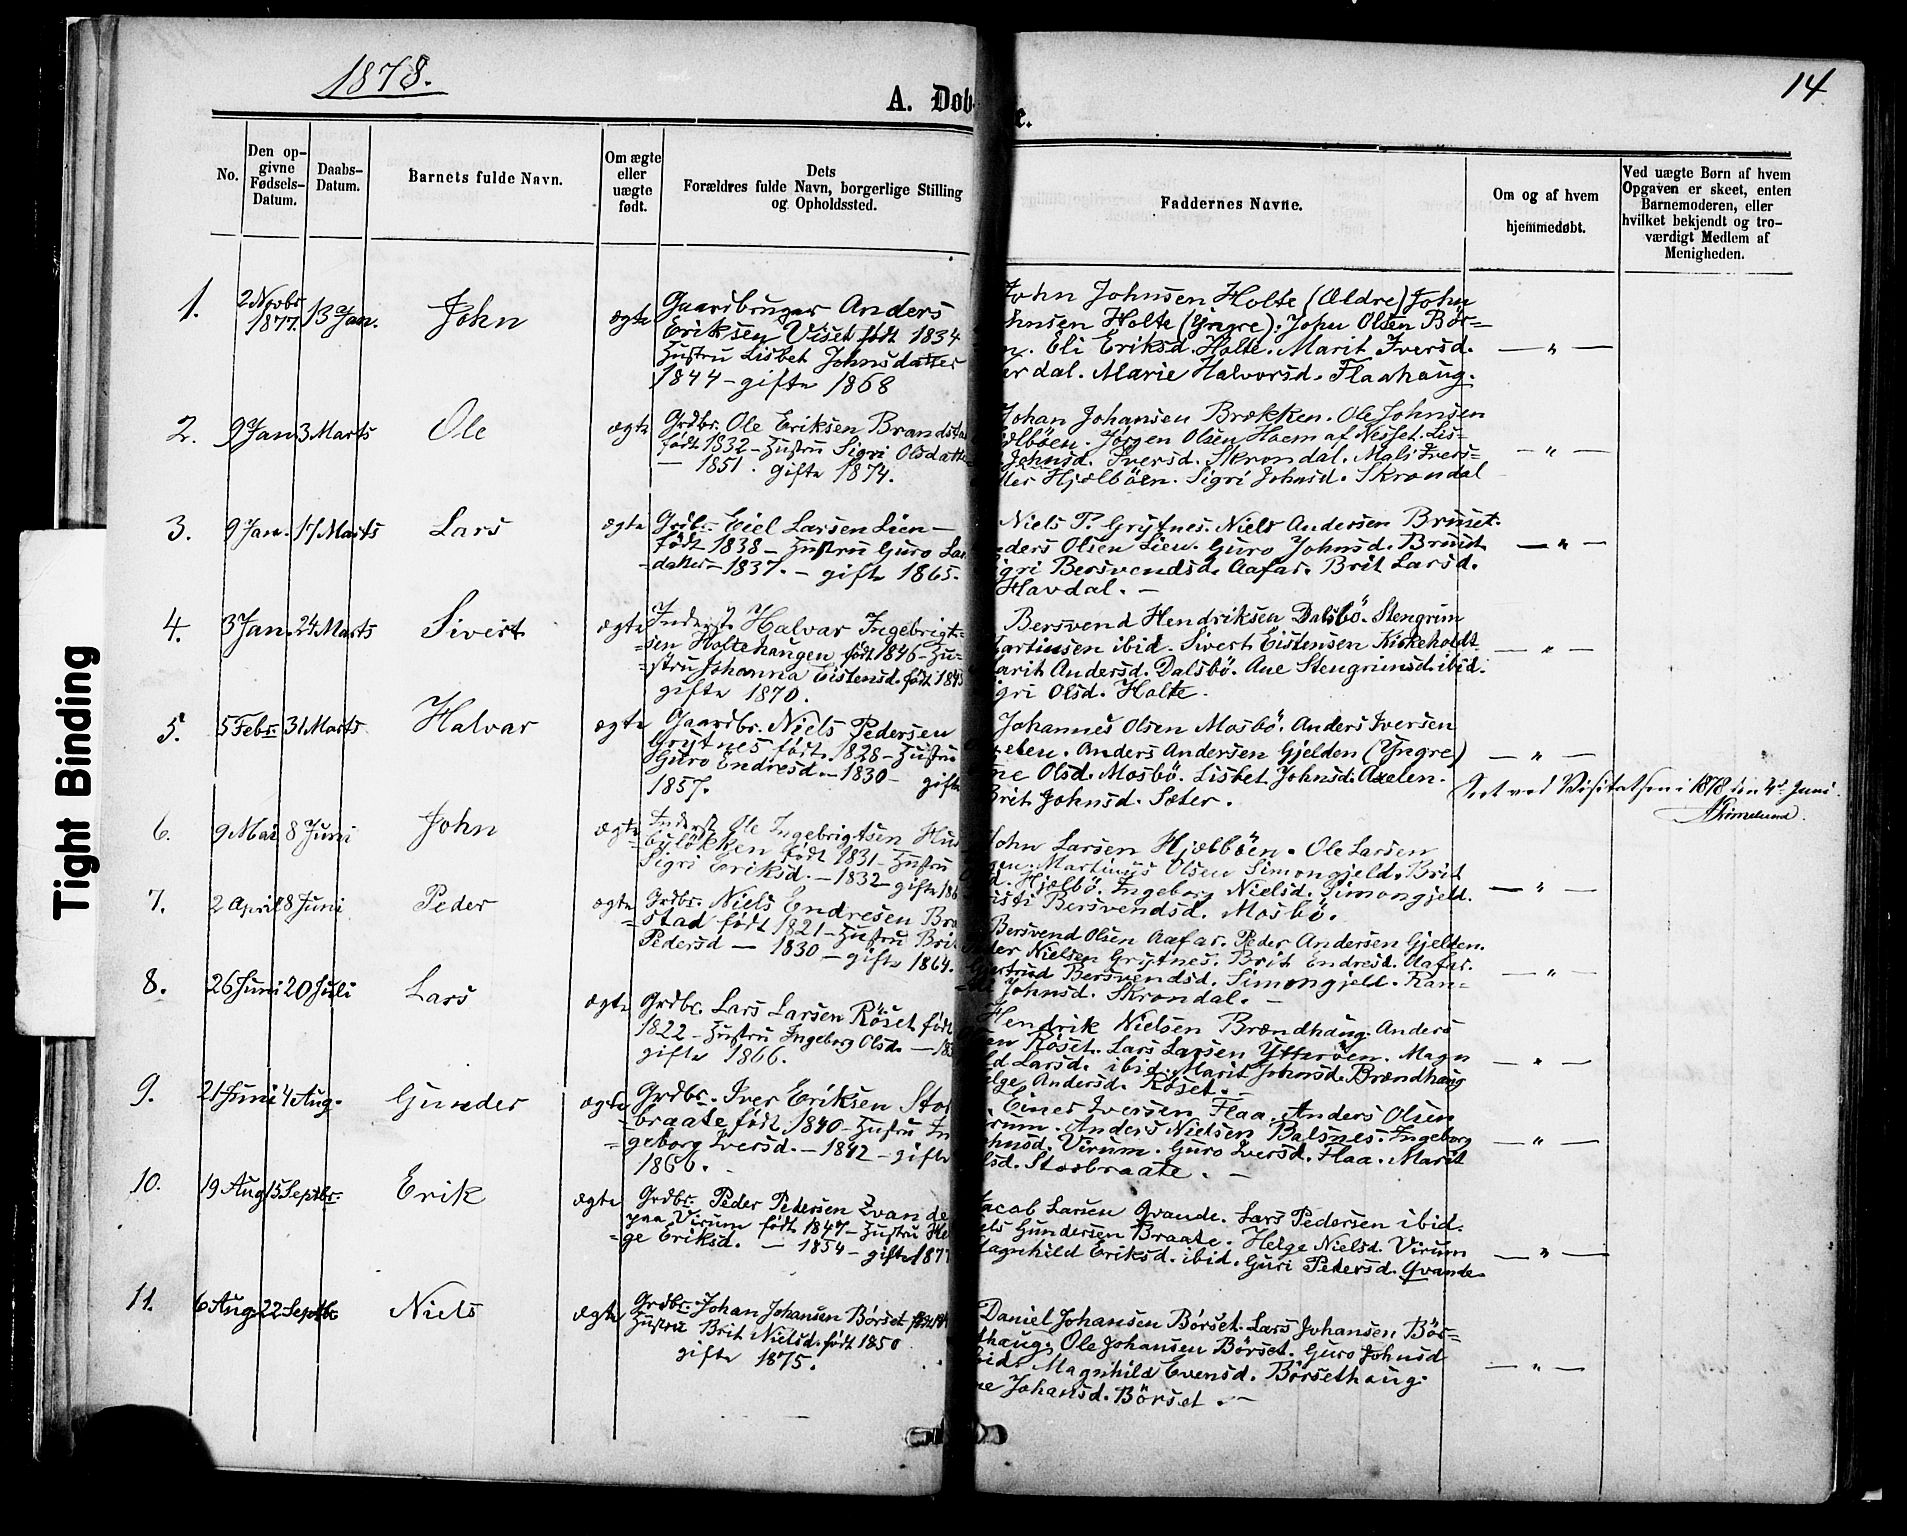 1878.
14
A. Døb-
e.
No.
Den op-
givne
Fødsels-
Datum.
Daabs-
Datum.
Barnets fulde Navn.
Om ægte
eller
uægte
født.
Dets
Forældres fulde Navn, borgerlige Stilling
og Opholdssted.
Faddernes Navne.
Om og af hvem
hjemmedøbt.
Ved uægte Børn af hvem
Opgaven er skeet, enten
Barnemoderen, eller
hvilket bekjendt og tro-
værdigt Medlem af
Menigheden.
1.
2 Novbr
1877.
13 Jan.
John
ægte
Gaardbruger Anders
Eriksen Viset født 1834
Hustru Lisbet Johnsdatter
1844 - gifte 1868
John Johnsen Holte (Ældre) John
hnsen Holte (Yngre). John Olsen Bør=
n. Eli Eriksd. Holte. Marit Iversd.
erdal. Marie Halvorsd. Flaahaug.
— „ —
2.
9 Jan
3 Marts
Ole
ægte
Grdbr. Ole Eriksen Brandsta
født 1832 - Hustru Sigri Olsdatte
— 1851. gifte 1874.
Johan Johansen Brækken. Ole Johnsen
jælbøen. Jørgen Olsen Hoem af Nesset. Lis=
Johnsd. Iversd. Skrondal. Mali Ivers=
ter Hjælbøen. Sigri Johnsd. Skrondal
— „ —
3.
9 Jan.
17 Marts
Lars
ægte
Grdbr. Eiel Larsen Lien -
født 1838 - Hustru Guro Lar
=datter - 1837. - gifte 1865.
Niels P. Grytnes. Niels Andersen Bruset.
nders Olsen Lien. Guro Johnsd. Bruset
igri Bersvendsd. Aafar. Brit Larsd.
Havdal. -
— „ —
4.
3 Jan.
24 Marts
Sivert
ægte
Inderst. Halvar Ingebrigt=
=sen Holtehaugen født 1846 - Hu=
=stru Johanna Eistensd. født 1845
gifte 1870.
Bersvend Hendriksen Dalsbö. Stengrim
artinsen ibid. Sivert Eistensen Kirkeholdt
arit Andersd. Dalsbö. Ane Stengrimsd. ibid.
gri Olsd. Holte.
— „ —
5.
5 Febr.
31 Marts
Halvar
ægte
Gaardbr. Niels Pedersen
Grytnes født 1828 - Hustru
Guro Endresd. - 1830 - gifte
1857.
Johannes Olsen Mosbö. Anders Iversen
elen. Anders Andersen Gjelden (Yngre)
ne Olsd. Mosbö. Lisbet Johnsd. Axelen.
Brit Johnsd. Sæter.
— „ —
Seet ved Visitatsen i 1878 den 4de Juni.
6.
9 Mai
8 Juni
John
ægte
Inderst Ole Ingebrigtsen Hus
=byløkken født 1831 - Hustru
Sigri Eriksd. - 1832 - gifte 186
John Larsen Hjælbøen. Ole Larsen
gen. Martinus Olsen Simongjeld. Brit
d. Hjælbö. Ingeborg Nielsd. Simongjeld.
isti Bersvendsd. Mosbö.
— „ —
7.
2 April
8 Juni
Peder
ægte
Grdbr. Niels Endresen Bra
=stad født 1821 - Hustru Brit
Pedersd - 1830 - gifte 1864.
Bersvend Olsen Aafar. Peder Andersen Gjelden.
eder Nielsen Grytnes. Brit Endresd. Aafar.
Gjertrud Bersvendsd. Simongjeld. Ran=
Johnsd. Skrondal. -
— „ —
8.
26 Juni
20 Juli
Lars
ægte
Grdbr. Lars Larsen Röset født
1822 - Hustru Ingeborg Olsd. - 183
gifte 1866.
Hendrik Nielsen Brændhaug. Anders
en Röset. Lars Larsen Ytterøen. Magn
ld Larsd. ibid. Marit Johnsd. Brændhaug
elge Andersd. Röset. -
— „ —
9.
21 Juni
4 Aug.
Gunder
ægte
Grdbr. Iver Eriksen Stor
=braate født 1840 - Hustru In
=geborg Iversd. - 1842 - gifte
1866.
Einer Iversen Flaa. Anders Olsen
rum. Anders Nielsen Balsnes. Ingeborg
ohnsd. Virum. Guro Iversd. Flaa. Marit
lsd. Storbraate. -
— „ —
10.
19 Aug
15 Septbr.
Erik
ægte
Grdbr. Peder Pedersen Qvande
paa Virum født 1847 - Hustru Hel
=ge Eriksd. - 1854 - gifte 1877
Jacob Larsen Qvande. Lars Pedersen ibid.
els Gundersen Braate. Helge Nielsd. Virum
Magnhild Eriksd. ibid. Guri Pedersd. Qvande.
— „ —
11.
6 Aug.
22 Septbr
Niels
ægte
Grdbr. Johan Johansen Børset født 184
Hustru Brit Nielsd. født 1850
gifte 1875.
Daniel Johansen Börset. Lars Johansen Bör=
thaug. Ole Johansen Börset. Guro Johnsd
bid. Magnhild Evensd. Börsethaug.
ne Johansd. Börset. -
— „ —
Tight Binding